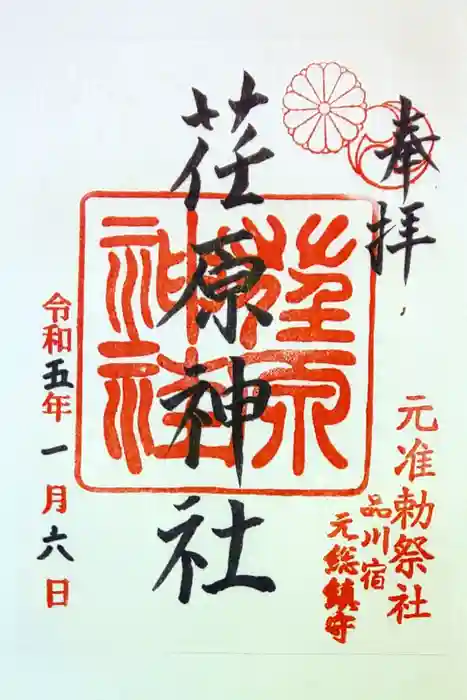 奉拝
元准勅祭社
品川宿
元総鎮守
荏原神社
荏原神社
令和五年一月六日